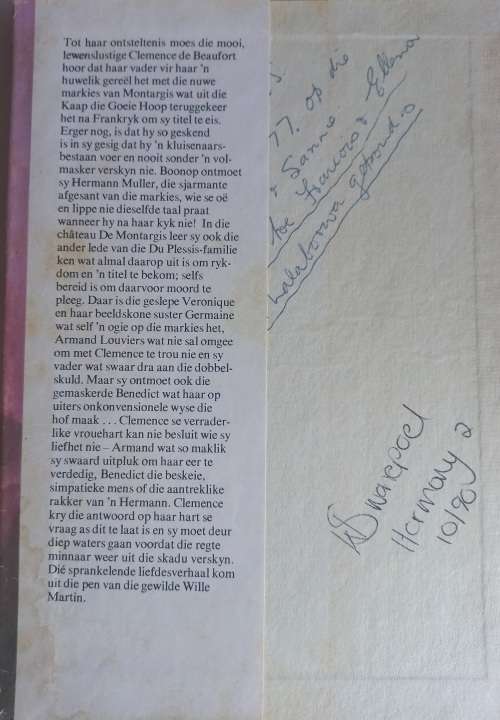 Tot haar ontsteltenis moes die mooi,
lewenslustige Clemence de Beaufort
hoor dat haar vader vir haar 'n
huwelik gereël het met die nuwe
markies van Montargis wat uit die
Kaap die Goeie Hoop teruggekeer
het na Frankryk om sy titel te eis.
Erger nog, is dat hy so geskend
is in sy gesig dat hy 'n kluisenaars-
bestaan voer en nooit sonder 'n vol-
masker verskyn nie. Boonop ontmoet
sy Hermann Muller, die sjarmante
afgesant van die markies, wie se oë
en lippe nie dieselfde taal praat
wanneer hy na haar kyk nie! In die
château De Montargis leer sy ook die
ander lede van die Du Plessis-familie
ken wat almal daarop uit is om ryk-
dom en 'n titel te bekom; selfs
bereid is om daarvoor moord te
pleeg. Daar is die geslepe Veronique
en haar beeldskone suster Germaine
wat self 'n ogie op die markies het,
Armand Louviers wat nie sal omgee
om met Clemence te trou nie en sy
vader wat swaar dra aan die dobbel-
skuld. Maar sy ontmoet ook die
gemaskerde Benedict wat haar op
uiters onkonvensionele wyse die
hof maak . . . Clemence se verrader-
like vrouehart kan nie besluit wie sy
liefhet nie – Armand wat so maklik
sy swaard uitpluk om haar eer te
verdedig, Benedict die beskeie,
simpatieke mens of die aantreklike
rakker van 'n Hermann. Clemence
kry die antwoord op haar hart se
vraag as dit te laat is en sy moet deur
diep waters gaan voordat die regte
minnaar weer uit die skadu verskyn.
Dié sprankelende liefdesverhaal kom
uit die pen van die gewilde Wille
Martin.
77. op die
Sannie
toe Francois & Ellena
getroud is
Swarepoel
Hermony 2
10/90